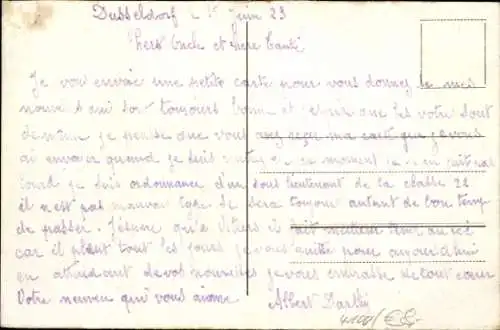 Dusseldorf le 15 Juin 23
Chers Oncle et chere Tante
Je vous envoie une petite carte pour vous donner de mes
nouvelles qui sont toujours bonne et espere que les votre sont
de même je pense que vous avez reçu ma carte que je vous
ai envoyer quand je suis en ce moment
je suis ordonnance d'un sous lieutenant de la classe 22
il n'est pas mauvais type se sera toujours autant de bon temp
de passer. J'espère qu'a il fait meilleur qu'ici
car il pleut tout les jours je vous quitte pour aujourd'hui
en attendant de vos nouvelles je vous embrasse de tout cœur
Votre neveu qui vous aime. Albert